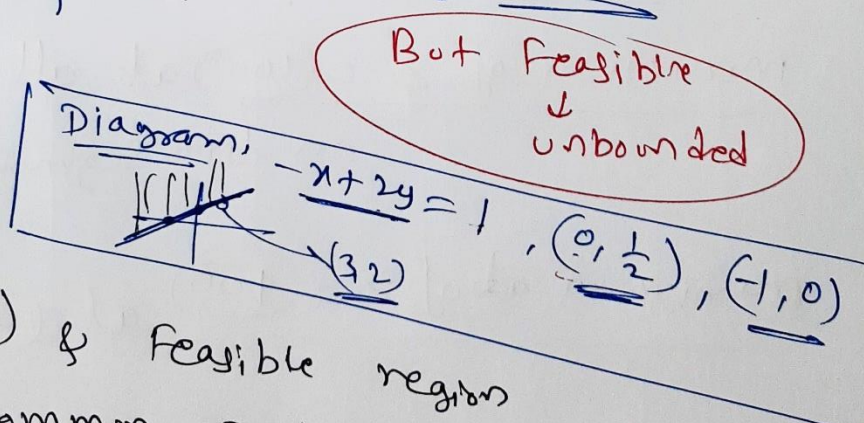 But Feasible
↓
unbounded
Diagram, -x+2y = 1, (0, 1/2), (-1, 0)
(3,2)
) & Feasible region